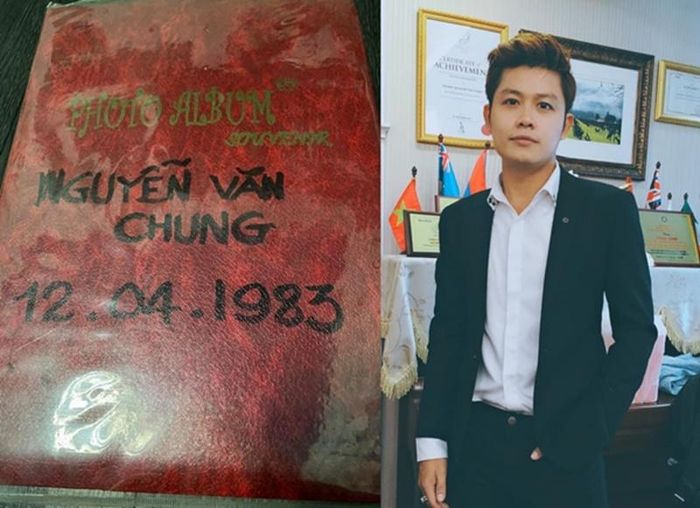 PHOTO ALBUM
SOUVENIR
NGUYỄN VĂN
CHUNG
12.04.1983
CERTIFICATE of
ACHIEVEMENT